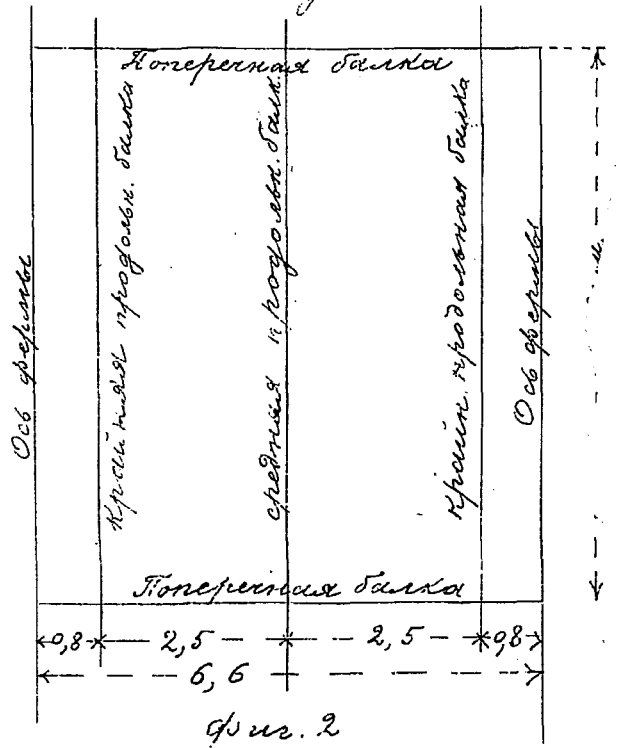 Поперечная балка
Ось фермы
Крайняя продольн. балка
средняя продольн. балк.
крайн. продольная балка
Ось фермы
Поперечная балка
0,8 2,5 2,5 0,8
6,6
Фиг. 2